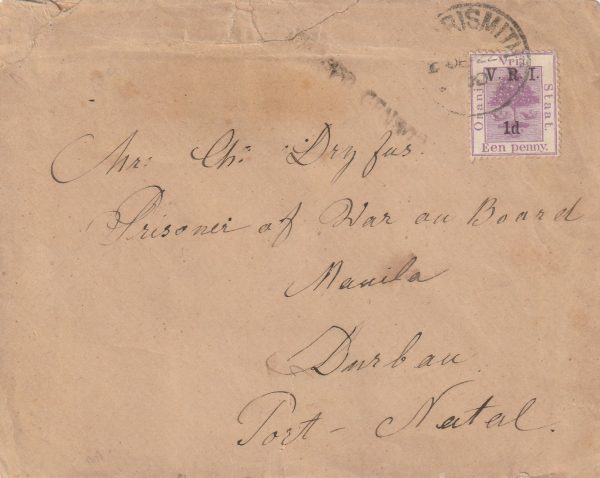 RISMITH
Vrije
V. R. I.
Oranje
Staat.
1d
Een penny.
Mr. Ch. Dryfus.
Prisoner of War on Board
Manila
Durban
Port - Natal.